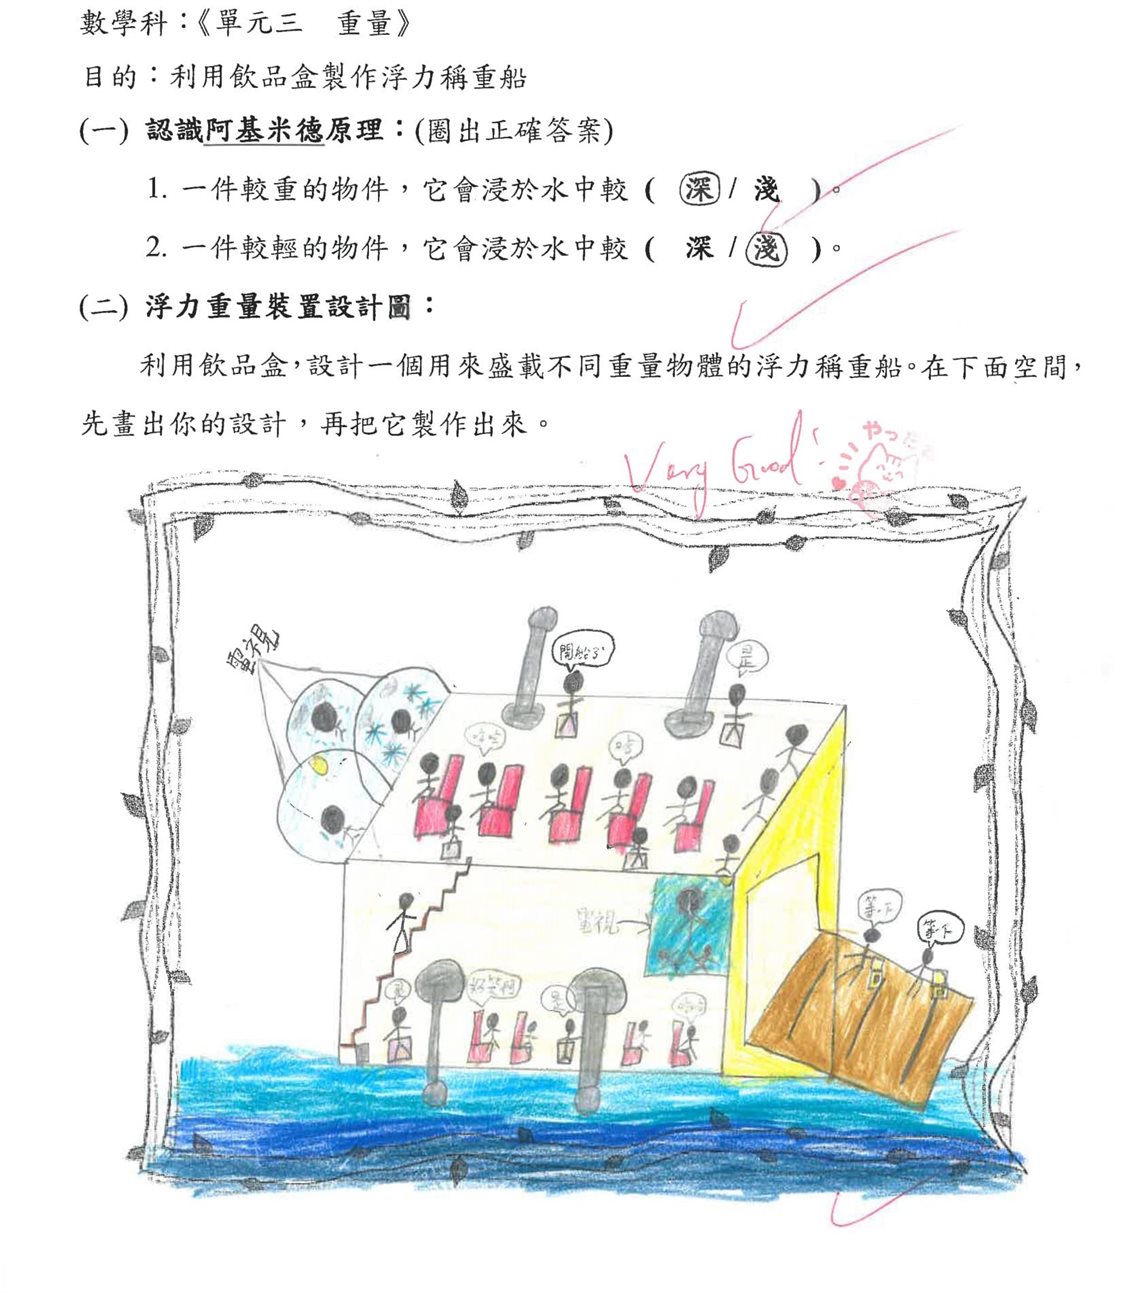 數學科：《單元三　重量》
目的：利用飲品盒製作浮力稱重船
(一) 認識阿基米德原理：(圈出正確答案)
1. 一件較重的物件，它會浸於水中較 ( 深 / 淺 )。
2. 一件較輕的物件，它會浸於水中較 ( 深 / 淺 )。
(二) 浮力重量裝置設計圖：
利用飲品盒，設計一個用來盛載不同重量物體的浮力稱重船。在下面空間，
先畫出你的設計，再把它製作出來。
Very Good!
電視
開船了
是
哈哈
哈
電視
等一下
等一下
是
好笑
是
哈哈